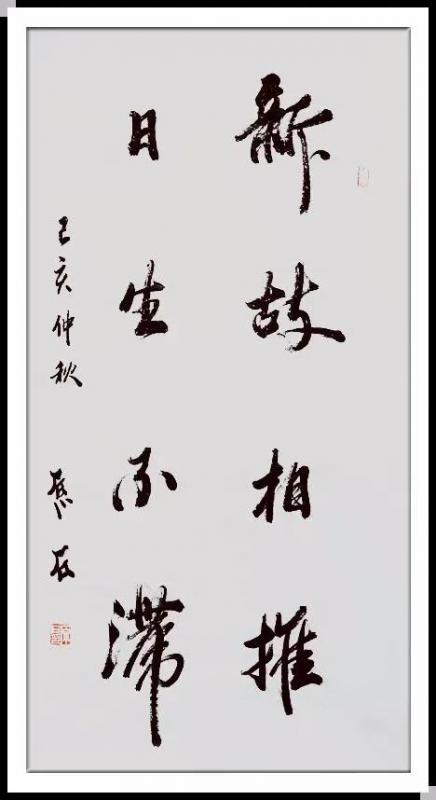 新故相推
日生不滞
己亥仲秋